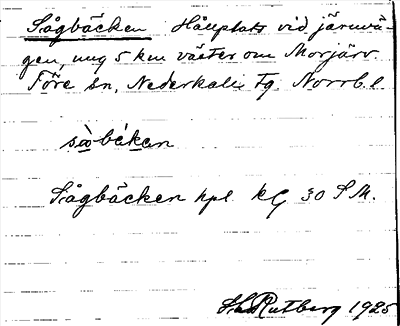 Sågbäcken Hållplats vid järnvä-
gen, ung 5 km väster om Morjärv.
Töre sn, Nederkalix tg. Norrb. l
såbäkan
Sågbäcken hpl. kG 30 S M.
Rutberg 1925